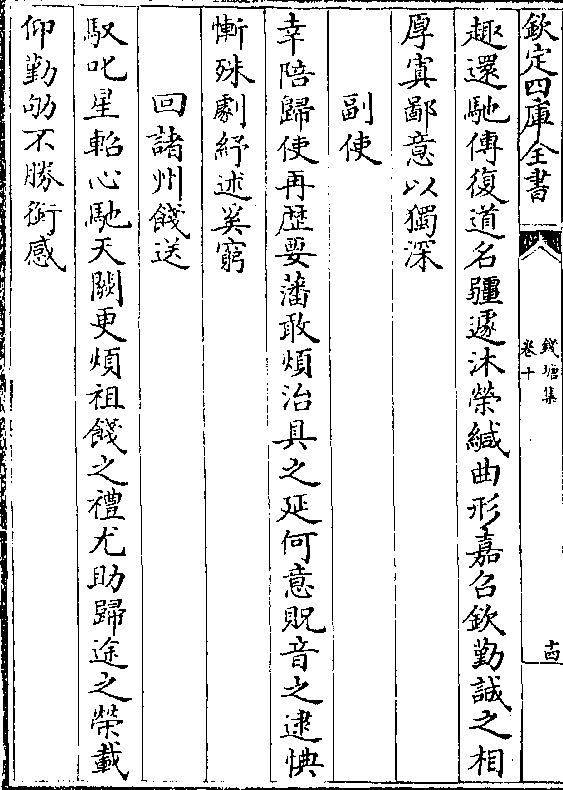 欽定四庫全書
錢塘集
卷十
十四
趣還馳傳復道名疆遽沐榮緘曲形嘉召欽勤誠之相
厚寘鄙意以獨深
副使
幸陪歸使再歴要藩敢煩治具之延何意貺音之逮惧
慚殊劇紓述奚窮
回諸州餞送
馭叱星軺心馳天闕更煩祖餞之禮尤助歸途之榮載
仰勤劬不勝銜感